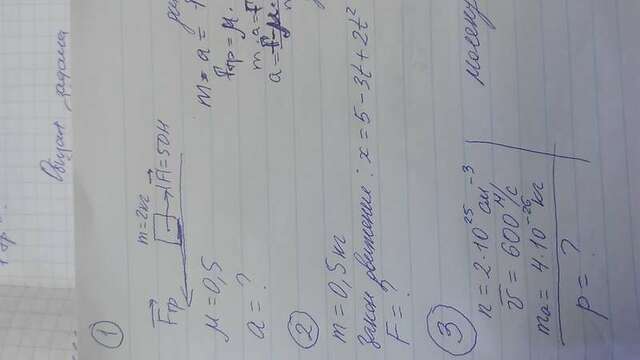 Общая задача
①
m=2кг
F⃗тр |F⃗|=50Н
μ=0,5
a=?
m·a=
Fтр=μ·
m·a=F
a=F-μ·
②
m=0,5кг
Закон движение: x=5-3t+2t²
F=?
③
n=2·10²⁵см⁻³
v̅=600м/с
mₐ=4·10⁻²⁶кг
p=?
молеку